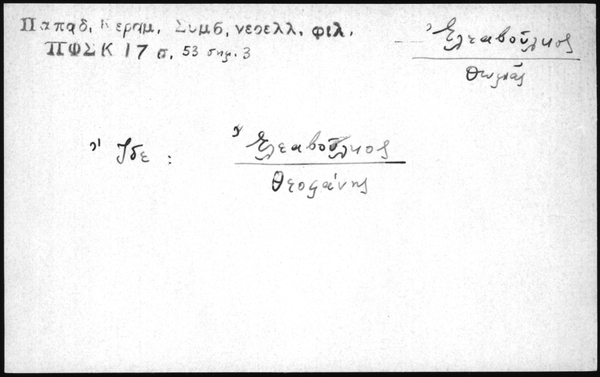 Παπαδ. Κεραμ. Συμβ. νεοελλ. φιλ.
ΠΦΣΚ 17 σ. 53 σημ. 3
Ἐλεαβοῦλκος
Θωμᾶς
Ἴδε :
Ἐλεαβοῦλκος
Θεοφάνης